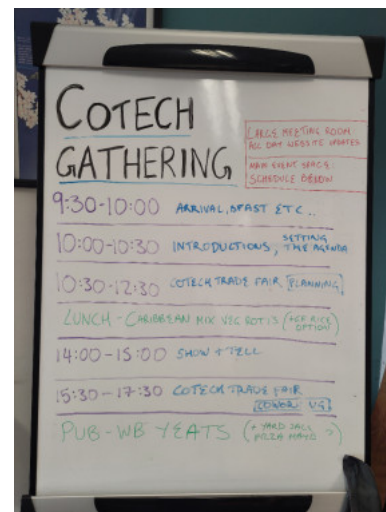 COTECH
GATHERING
LARGE MEETING ROOM:
ALL DAY WEBSITE UPDATES
MAIN EVENT SPACE:
SCHEDULE BELOW
9:30-10:00 ARRIVAL, BFAST ETC..
10:00-10:30 INTRODUCTIONS, SETTING THE AGENDA
10:30-12:30 COTECH TRADE FAIR [PLANNING]
LUNCH - CARIBBEAN MIX VEG ROTIS (+GF RICE OPTION)
14:00-15:00 SHOW + TELL
15:30-17:30 COTECH TRADE FAIR
PUB-WB YEATS (+ YARD SALE PIZZA